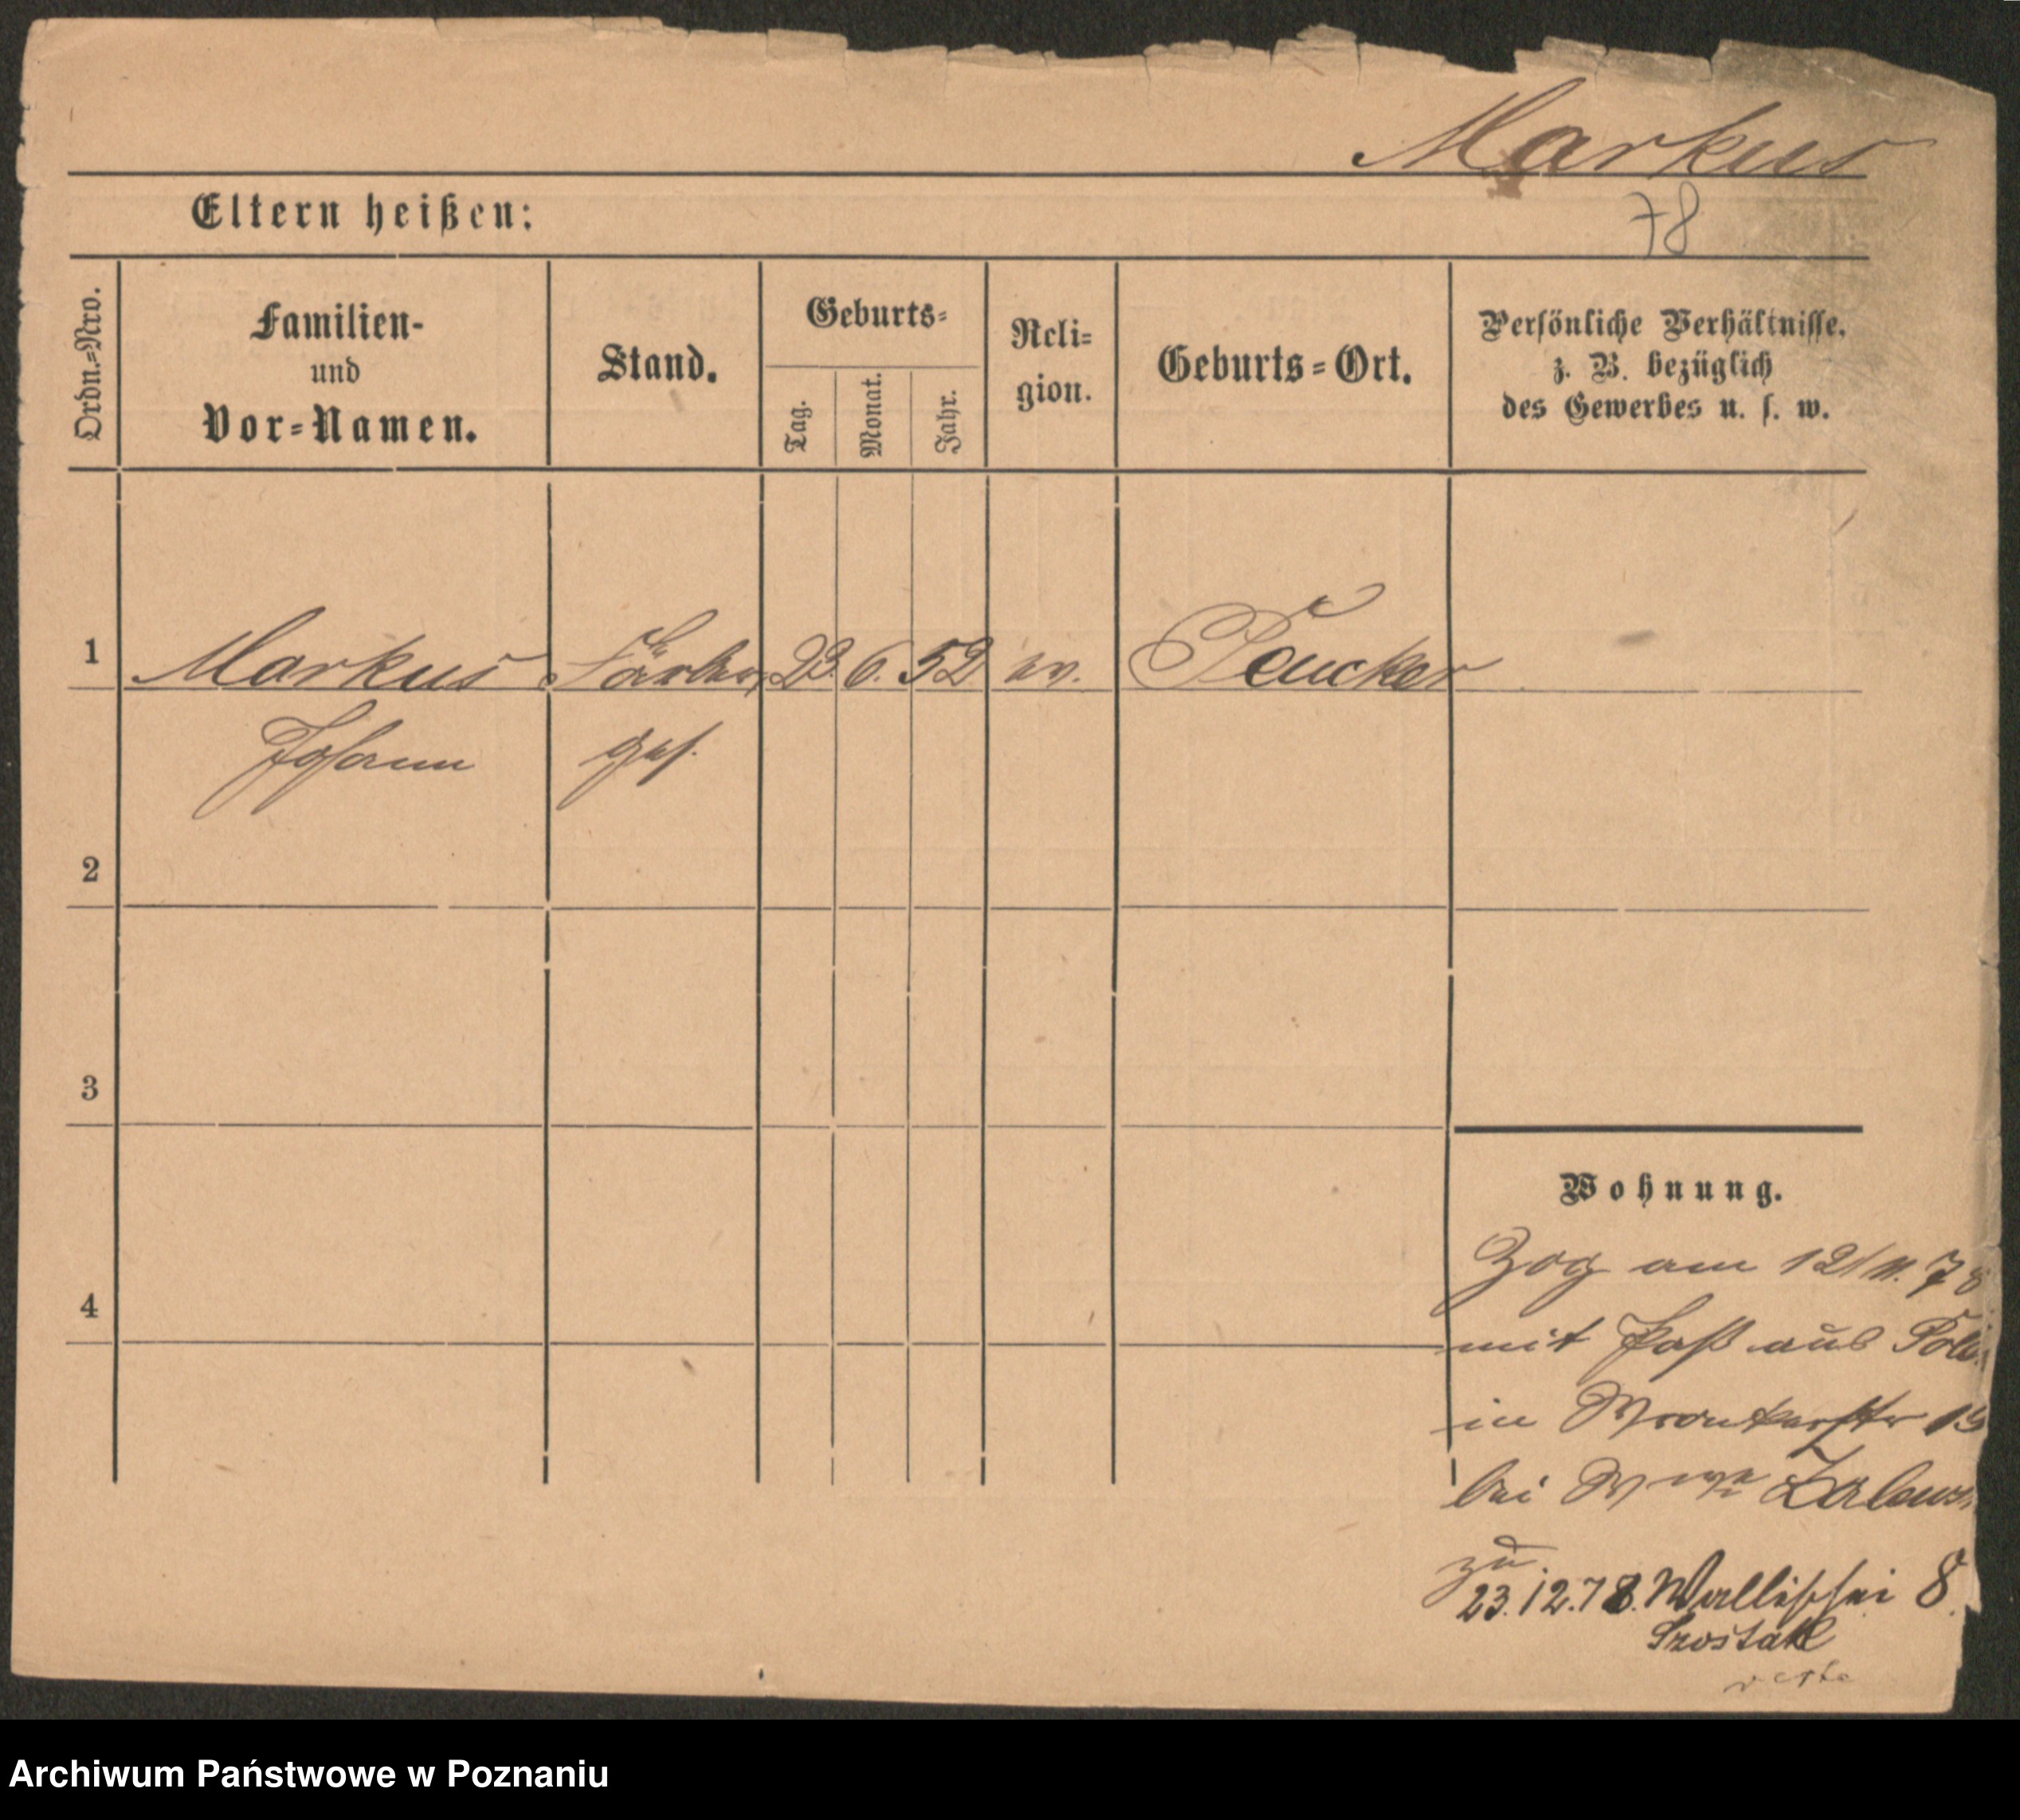 Markus
78
Eltern heißen:
Ordn.=Nro.
Familien-
und
Vor=Namen.
Stand.
Geburts=
Tag.
Monat.
Jahr.
Reli=
gion.
Geburts=Ort.
Persönliche Verhältnisse.
z. B. bezüglich
des Gewerbes u. s. w.
1 Markus Färber 23. 6. 52 ev. Peucker
Johann
2
3
4
Wohnung.
Zog am 12/11. 78
mit Paß aus
in
bei Wwe
zu
23.12.78. Wallischei 8.
Szostak
Archiwum Państwowe w Poznaniu